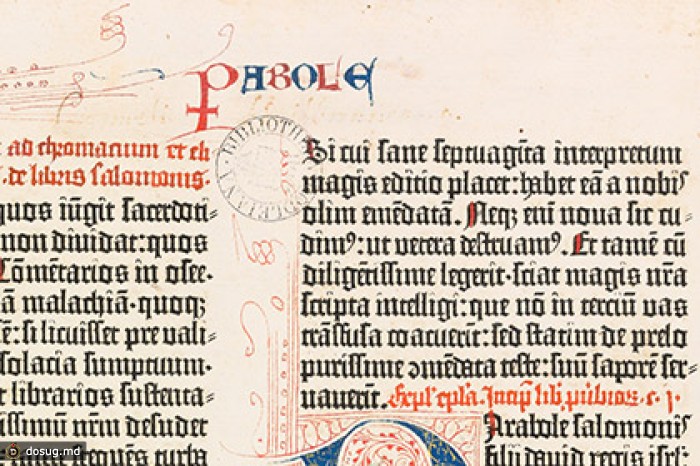 PABOLE
BIBLIOTH
LEIANA
ad chromacium et eli
de libris salomonis.
quos iūgit sacerdoti⸗
non dividat: quos
Cōmētarios in osee.
ā malachiā. quoqz
ē: si licuisset pre vali⸗
solacia sumptuum.
librarios sustenta⸗
issimū nr̄m desudet
Si cui sane septuagīta interpretum
magis editio placet: habet eā a nobiꝰ
olim emēdatā. Neqz enī noua sic cu⸗
dimꝰ: ut vetera destruamꝰ. Et tamē cū
diligētissime legerit. sciat magis nr̄a
scripta intelligi: que nō in terciū vas
trāsfusa coacuerīt: sed statim de prelo
purissime ↄmēdata teste: suū saporē ser⸗
uauerit. Expl' epl'a. Incip̄ lib̄.
Arabole salomoniꝰ
filij david regis isrl'.
dosug.md